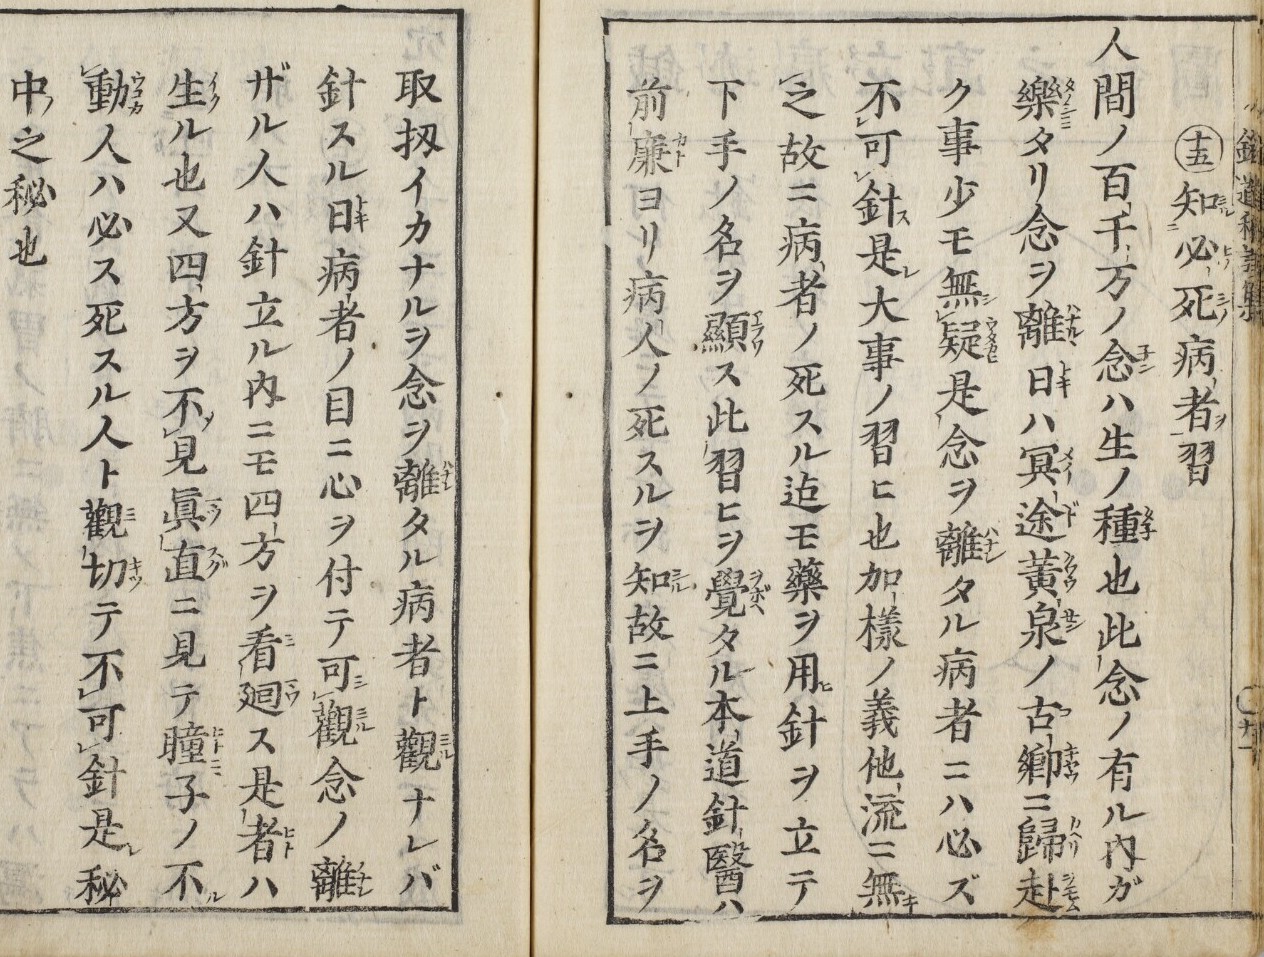 十五 知必死病者習
人間ノ百千万ノ念ハ生ノ種也此念ノ有ル内ガ
樂タリ念ヲ離日ハ冥途黄泉ノ古郷ニ歸赴
ク事少モ無疑是念ヲ離タル病者ニハ必ズ
不可針是大事ノ習ヒ也加様ノ義他流ニ無
之故ニ病者ノ死スル迠モ藥ヲ用針ヲ立テ
下手ノ名ヲ顯ス此習ヒヲ覺タル本道針醫ハ
前廉ヨリ病人ノ死スルヲ知故ニ上手ノ名ヲ
取扨イカナルヲ念ヲ離タル病者ト觀ナレバ
針スル日病者ノ目ニ心ヲ付テ可觀念ノ離
ザル人ハ針立ル内ニモ四方ヲ看廻ス是者ハ
生ル也又四方ヲ不見眞直ニ見テ瞳子ノ不
動人ハ必ス死スル人ト觀切テ不可針是秘
中之秘也